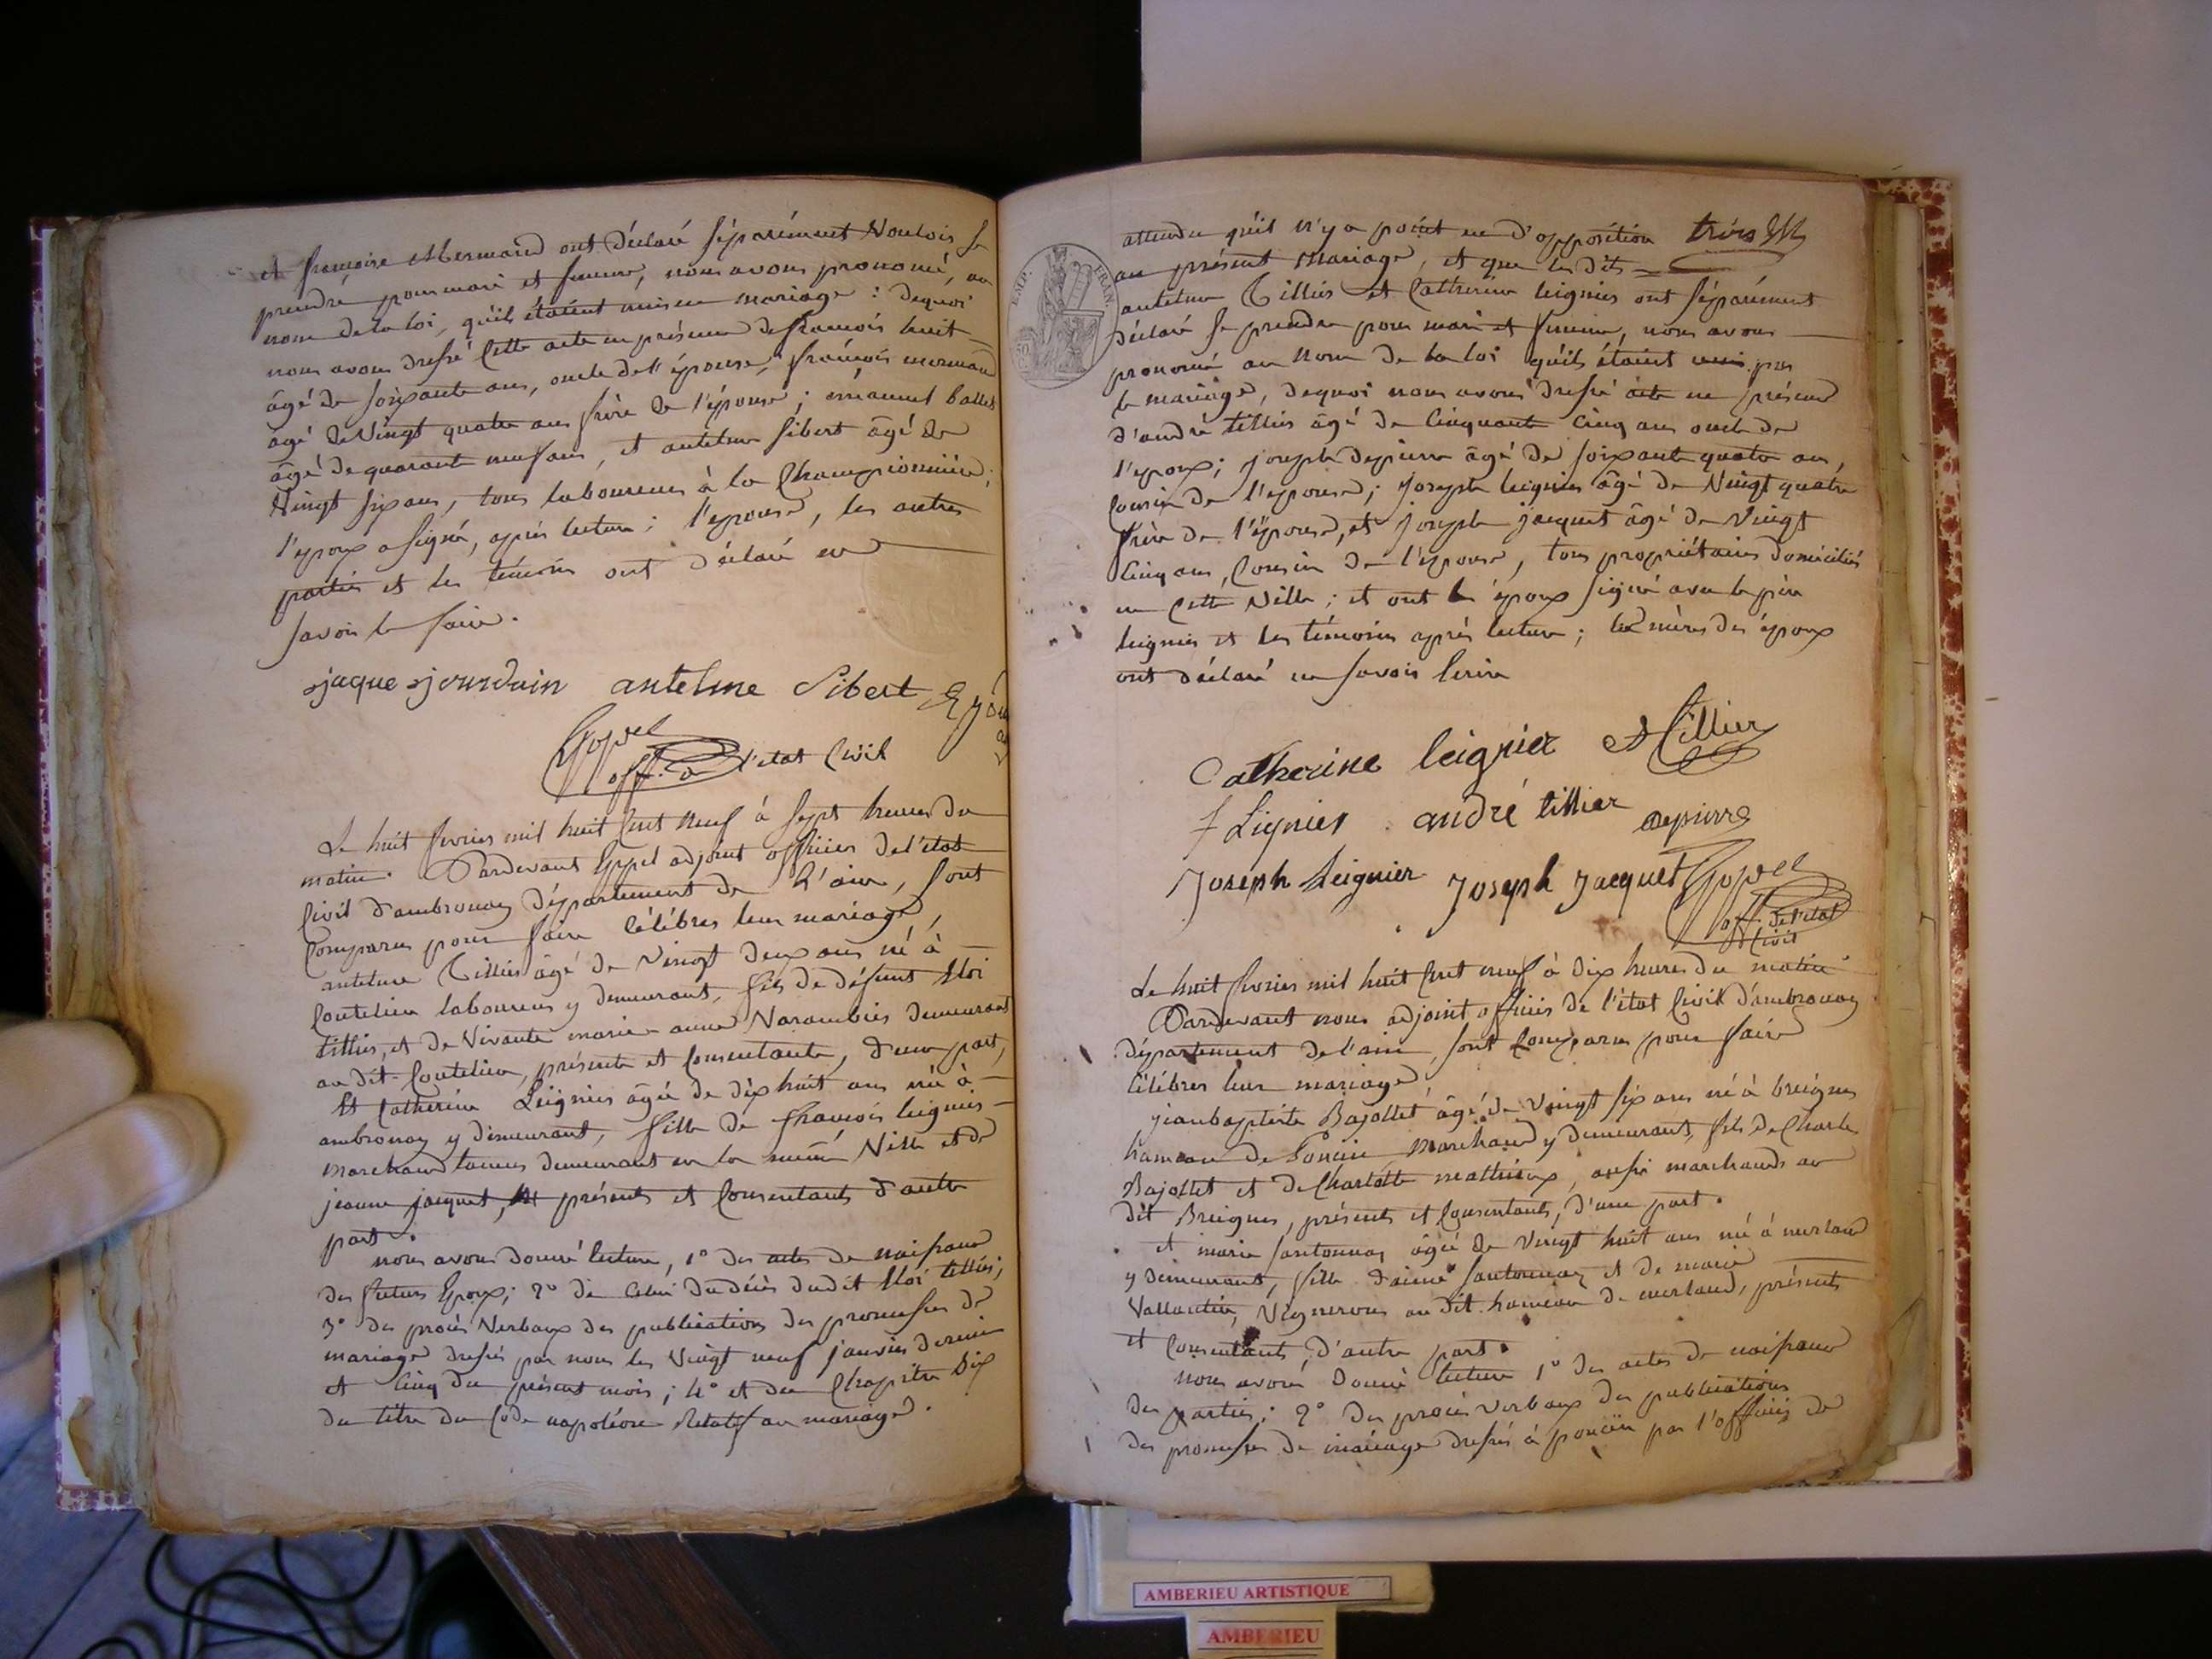 et françoise Mermand ont déclaré séparément vouloir se
prendre pour mari et femme, nous avons prononcé, au
nom de la loi, qu'ils étaient unis en mariage : dequoi
nous avons dressé cette acte en présence de françois huit
âgé de soixante ans, oncle de l'épouse, françois mermand
agé de vingt quatre ans frère de l'épouse ; ballet
âgé de quarante neuf ans, et antelme sibert âgé de
vingt six ans, tous laboureurs à la Championnière ;
l'epoux a signé, après lecture ; l'epouse, les autres
parties et les témoins ont déclaré ne
savoir le faire.
jaque jourdain antelme Sibert
off. de l'etat Civil
Le huit fevrier mil huit cent neuf à sept heures du
matin. Pardevant Goppel adjoint officier de l'état
Civil d'ambronay département de L'ain, sont
Comparus pour faire célébrer leur mariage,
antelme Tillier âgé de vingt deux ans né à
Coutelieu laboureur y demeurant, fils de défunt Eloi
tillier, et de vivante marie anne Varambier demeurant
au dit Coutelieu, présente et consentante, d'une part,
Et Catherine Leignier âgée de dix huit ans née à
ambronay y demeurant, fille de françois leignier
marchand taneur demeurant en la même Ville et de
jeanne jacquet, présents et consentants d'autre
part.
nous avons donné lecture, 1° des actes de naissance
des futurs Epoux ; 2° de celui du décès dudit Eloi tillier ;
3° des procès verbaux des publications des promesses de
mariage dressés par nous les vingt neuf janvier dernier
et cinq du présent mois ; 4° et du Chapitre six
du titre du Code napoléon Relatif au mariage.
EMP. FRAN.
attendu qu'il n'y a point eu d'opposition trois
au présent mariage, et que les dits
antelme Tillier et Catherine leignier ont séparément
déclaré se prendre pour mari et femme, nous avons
prononcé au nom de la loi qu'ils étaient unis par
le mariage, dequoi nous avons dressé acte en présence
d'andré tillier âgé de cinquante cinq ans oncle de
l'epoux ; joseph depierre âgé de soixante quatre ans,
cousin de l'epouse ; joseph leignier âgé de vingt quatre
frère de l'épouse, et joseph jacquet âgé de vingt
cinq ans, cousin de l'epouse, tous propriétaires domiciliés
en cette Ville ; et ont les époux signé avec le père
leignier et les témoins après lecture ; les mères des époux
ont déclaré ne savoir écrire
Catherine leignier A Tillier
f Lignier andré tillier depierre
Joseph Leignier Joseph Jacquet Goppel
off. de l'etat
Civil
Le huit fevrier mil huit cent neuf à dix heures du matin
Pardevant nous adjoint officier de l'état Civil d'ambronay
département de l'ain, sont comparus pour faire
célébrer leur mariage
jeanbaptiste Bajollet âgé de vingt six ans né à breignes
hameau de Poncin marchand y demeurant, fils de Charles
Bajollet et de Charlotte mathieux, aussi marchands au
dit Breignes, présents et consentants, d'une part.
et marie santonnay âgée de vingt huit ans née à merland
y demeurant, fille d'aimé santonnay et de marie
Vallantin, vignerons au dit hameau de merland, présents
et consentants, d'autre part.
nous avons donné lecture 1° des actes de naissance
des parties ; 2° des procès verbaux des publications
des promesses de mariage dressés à poncin par l'officier de
AMBERIEU ARTISTIQUE
AMBERIEU